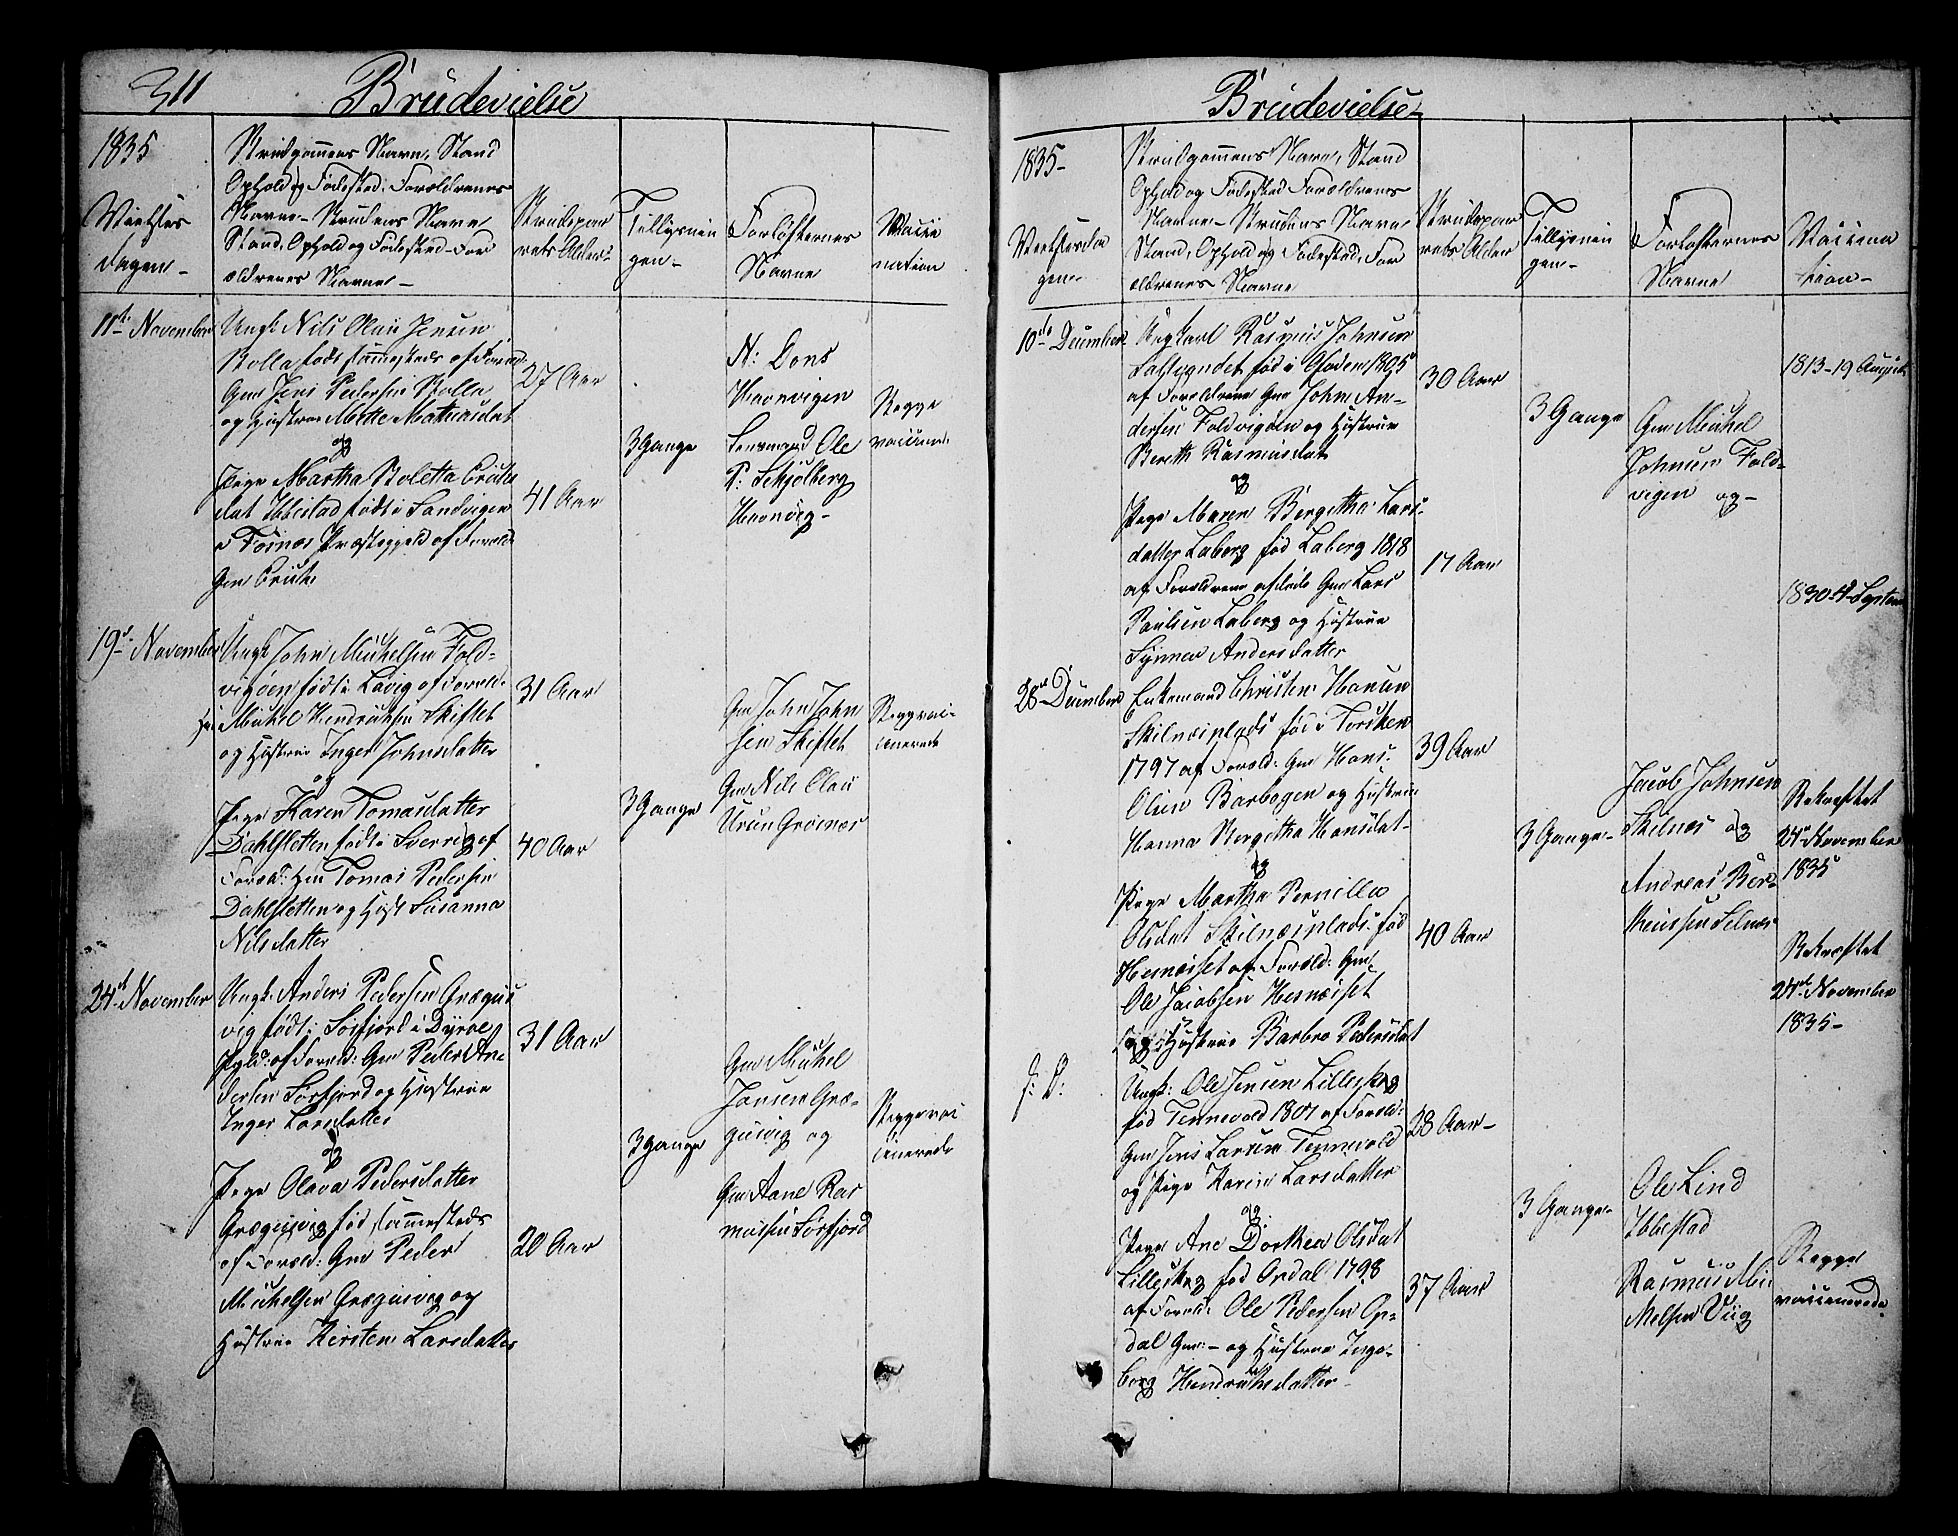 311
Brudevielse
1835
Vielses
dagen -
Brudgommens Navn, Stand
Ophold og Fødested. Forældrenes
Navne - Brudens Navn
Stand, Ophold og Fødested - For
ældrenes Navne -
Brudepar
rets Alder
Tillysnin
gen -
Forlofternes
Navne
Vacci
nation
11te November
Ungk: Nils Olaii Jensen
Rolla født sammesteds af Foræld:
Gm Jens Pedersen Rolla
og Hustrue Mette Mathiasdat
og
Pige Martha Boletta
dat Ibbestad født i Sandvigen
i Præstegjeld af Foræld:
Gm
27 Aar
41 Aar
3 Gange
N: Dons
Havnvigen
Lensmand Ole
P: Skjølberg
Havnvig -
Begge
vaccine:
19de November
Ungk John Michelsen Fold-
vigøen født i Løvig af Foræld:
Michel Hendriksen Skiftet
og Hustrue Inger Johnsdatter
og
Pige Karen Tomasdatter
Dahlsletten født i Sverrig af
Foræld: Gm Tomas Pedersen
Dahlsletten og Hust Susanna
Nilsdatter
31 Aar
40 Aar
3 Gange
Gm John John
sen Skiftet
Gm Nils Olai
Grøsnæs
Begge vac-
cinerede
24de November
Ungk: Anders Pedersen Grægus
vig født i Sørfjord i Dyrøe
Pgld: af Foræld: Gm Peder An
dersen Sørfjord og Hustrue
Inger Larsdatter
og
Pige Olava Pedersdatter
Grægusvig fød sammesteds
af Foræld: Gm Peder
Michelsen Grægusvig og
Hustrue Kirsten Larsdatter
31 Aar
20 Aar
3 Gange
Gm Michel
Jensen Græ-
gusvig og
Gm Aane Ras
musen Sørfjord
Begge vac
cinerede
Brudevielse
1835 -
Vielsesda
gen -
Brudgommens Navn, Stand
Ophold og Fødested Forældrenes
Navne - Brudens Navn
Stand, Ophold og Fødested, For
ældrenes Navne
Brudepar
rets Alder
Tillysnin
gen -
Forlofternes
Navne
Vaccina
tion -
10de December
Ungkarl Rasmus Johnsen
født i Ofoden 1805
af Forældrene Gm John An-
dersen Foldvigøen og Hustrue
Bereth Rasmusdat
og
Pige Maren Bergitha Lars-
datter Laberg fød Laberg 1818
af Forældrene afdøde Gm Lars
Paulsen Laberg og Hustrue
Synnev Andersdatter
30 Aar
17 Aar
3 Gange
Gm Michel
Johnsen Fold-
vigen og -
1813 - 19 August
1830 - Septem
28de December
Enkemand Christen Hansen
Skilnæsplads fød i Torsken
1797 af Foræld: Gm Hans
Olsen Barbogen og Hustrue
Hanna Bergitha Hansdat -
og
Pige Martha Pernilla
Olsdat Skilnæsplads fød
Hesnæsset af Foræld: Gm
Ole Jacobsen Hesnæsset
og Hustrue Barbro Pedersdat
39 Aar
40 Aar
3 Gange -
Jacob Johnsen
Skilnæs og
Andreas Ber-
theussen Selnæs
Bekræftet
24de November
1835
Bekræftet
24de November
1835 -
J: D:
Ungk: Ole Jensen Lilleskog
fød Tennevold 1807 af Foræld:
Gm Jens Larsen Tennevold
og Pige Karen Larsdatter
og
Pige Ane Dorthea Olsdat
Lilleskog fød Opdal 1798
af Foræld: Ole Pedersen Op-
dal Gm: - og Hustrue Inge-
borg Hendrichsdatter -
28 Aar -
37 Aar
3 Gange -
Ole Lind
Ibbestad
Rasmus Mi
kelsen Viig
Begge
vaccinerede